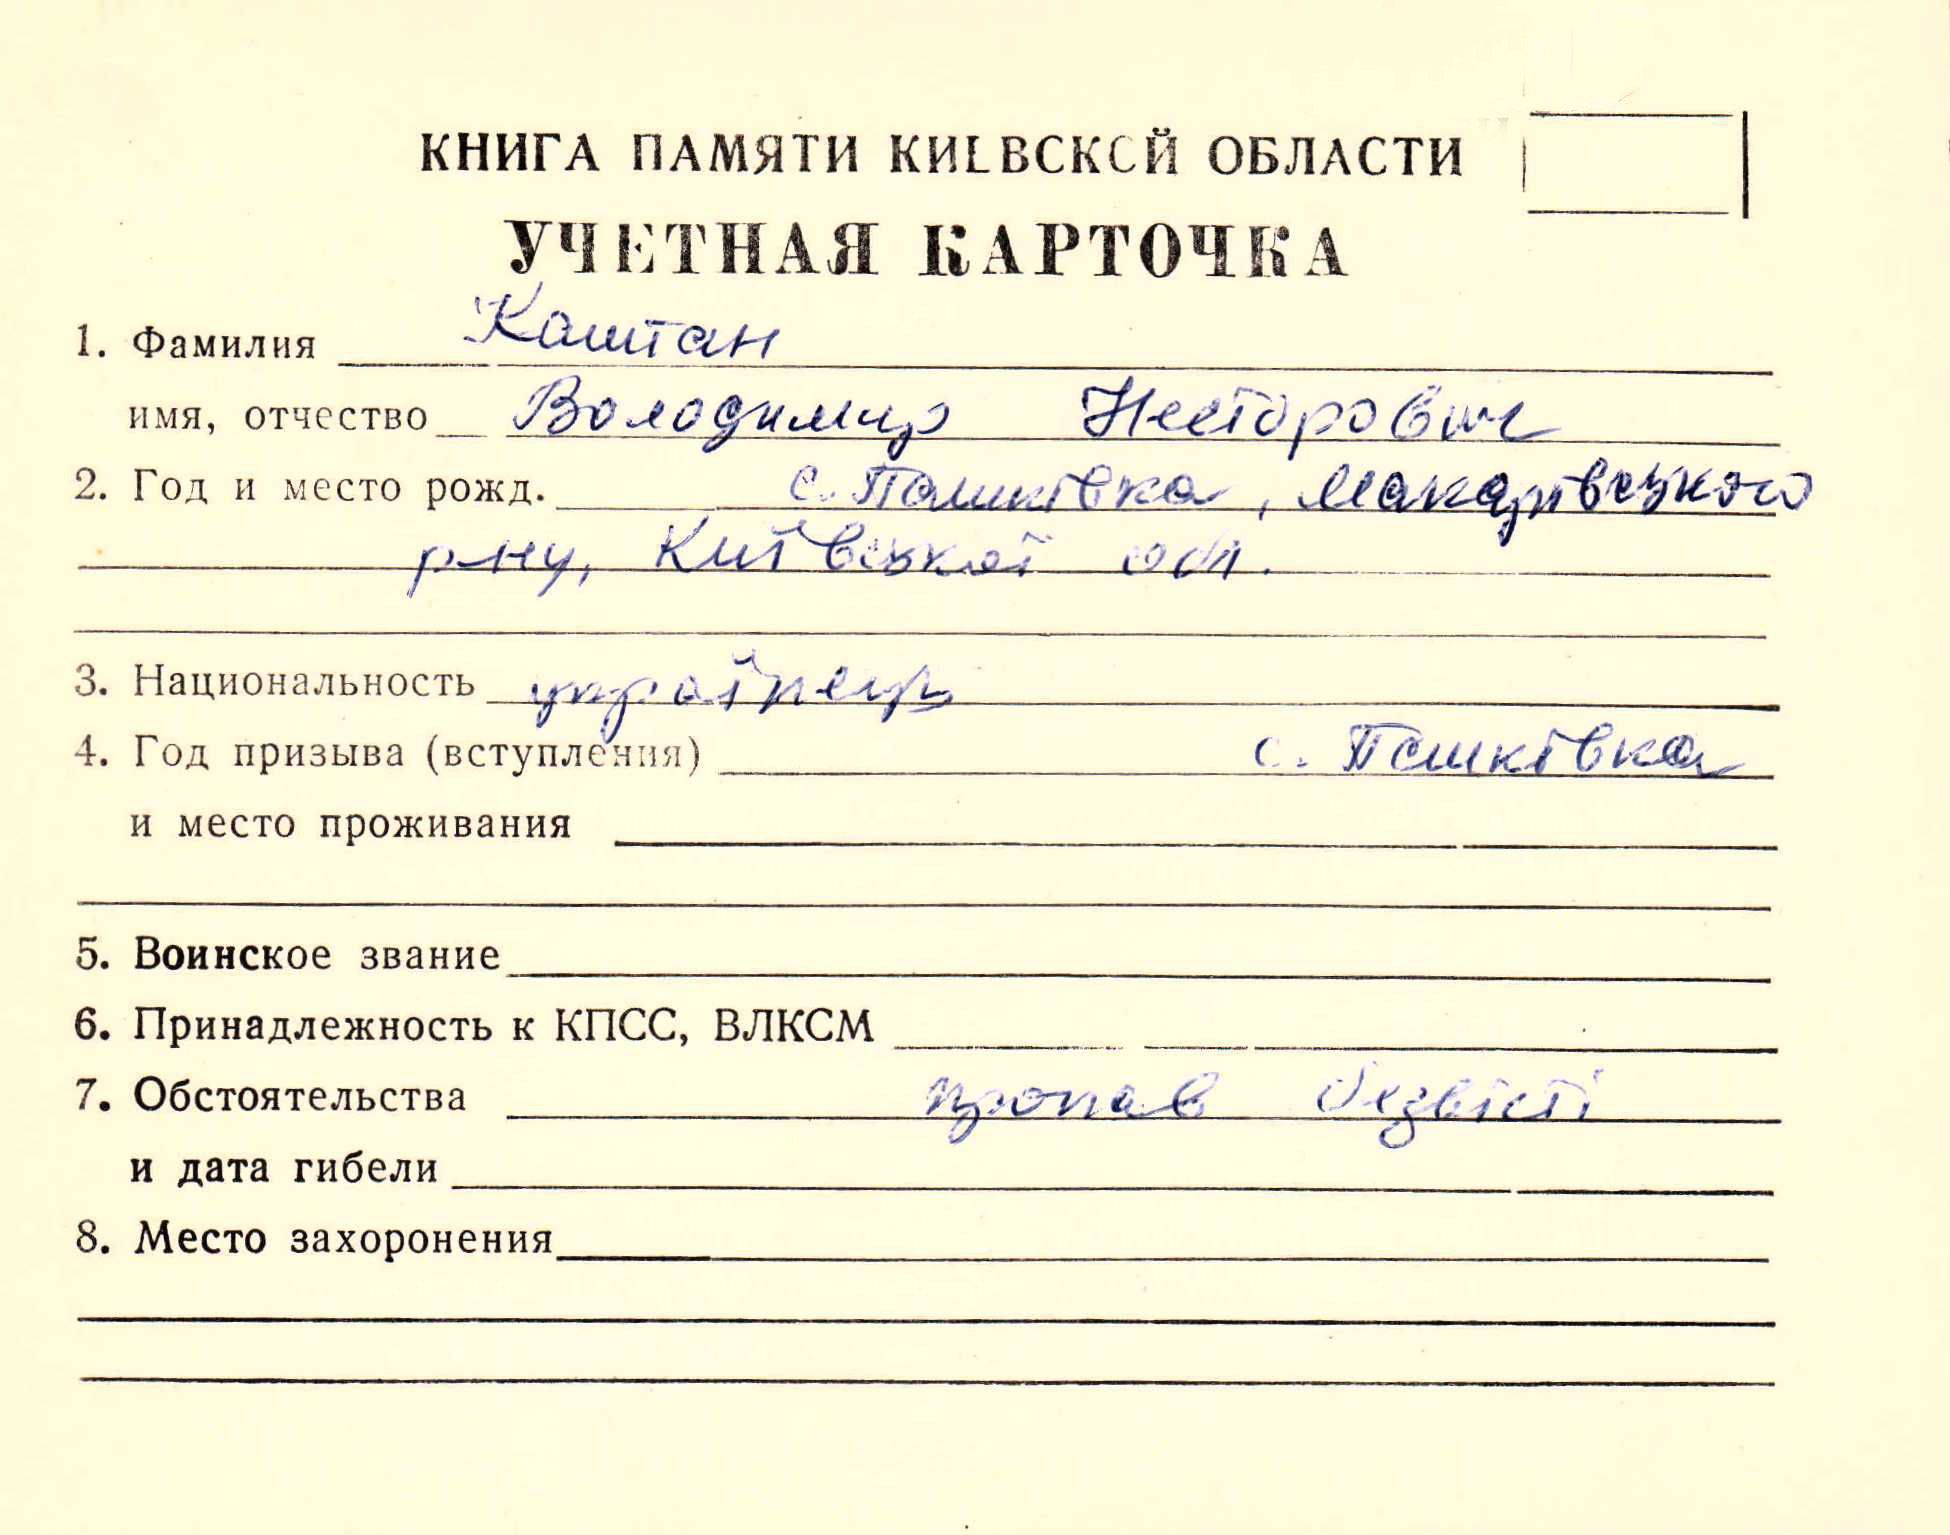 КНИГА ПАМЯТИ КИЕВСКОЙ ОБЛАСТИ
УЧЕТНАЯ КАРТОЧКА
1. Фамилия Каштан
имя, отчество Володимир Несторович
2. Год и место рожд. с. Пашківка, Макарівського
р-ну, Київської обл.
3. Национальность українець
4. Год призыва (вступления) с. Пашківка
и место проживания
5. Воинское звание
6. Принадлежность к КПСС, ВЛКСМ
7. Обстоятельства пропав безвісті
и дата гибели
8. Место захоронения